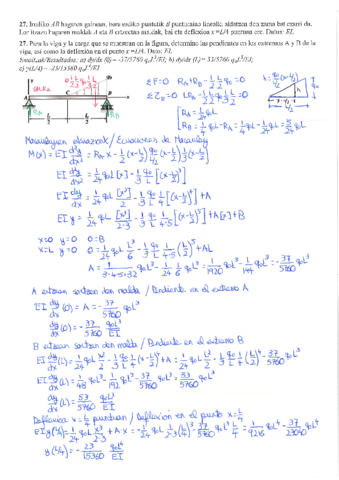 27. Irudiko AB hagaren gainean, bere erdiko puntutik B punturaino linealki aldatzen den zama bat ezarri da.
Lor itzazu hagaren maldak A eta B ertzetan eta
deflexioa x=L/4 puntuan ere. Datua: EI.
27. Para la viga y la carga que se muestran en la figura, determine las pendientes en los extremos A y B de la
viga, así como la deflexión en el punto x=L/4. Dato: EI.
Emaitzak/Resultados: a) dy/dx (0) = -37/5760 q₀L³/EI; b) dy/dx (L) = 53/5760 q₀L³/EI
c) y(L/4) = -23/15360 q₀L⁴/EI
ΣF=0 R_A+R_B-1/2 L/2 q₀=0
ΣZ_B=0 LR_A-1/2 L/2 q₀ 1/3 L/2=0
R_A=1/24 q₀L
R_B=1/4 q₀L-R_A=1/4 q₀L-1/24 q₀L=5/24 q₀L
Macaulayren ekuazioak/Ecuaciones de Macaulay
M(x)=EI d²y/dx²=R_A x-1/2(x-L/2) q₀/(L/2) (x-L/2) 1/3 (x-L/2)
EI d²y/dx²=1/24 q₀L[x]-1/3 q₀/L [(x-L/2)³]
EI dy/dx=1/24 q₀L [x²]/2-1/3 q₀/L 1/4 [(x-L/2)⁴]+A
EI y=1/24 q₀L [x³]/2·3-1/3 q₀/L 1/4·5 [(x-L/2)⁵]+A[x]+B
x=0 y=0 0=B
x=L y=0 0=1/24 q₀L L³/6-1/3 q₀/L 1/4·5 (L/2)⁵+AL
A=1/3·4·5·32 q₀L³-1/24 1/6 q₀L³=1/1920 q₀L³-1/144 q₀L³=-37/5760 q₀L³
A ertzean sortzen den malda / Pendiente en el extremo A
EI dy/dx(0)=A=-37/5760 q₀L³
dy/dx(0)=-37/5760 q₀L³/EI
B ertzean sortzen den malda / Pendiente en el extremo B
EI dy/dx(L)=1/24 q₀L x²/2-1/3 q₀/L 1/4 (x-L/2)⁴+A=1/24 q₀L L²/2-1/3 q₀/L 1/4 (L/2)⁴-37/5760 q₀L³
EI dy/dx(L)=1/48 q₀L³-1/192 q₀L³-37/5760 q₀L³=53/5760 q₀L³
dy/dx(L)=53/5760 q₀L³/EI
Deflexioa x=L/4 puntuan / Deflexión en el punto x=L/4
EI y(L/4)=1/24 q₀L x³/2·3+A x=1/24 q₀L 1/2·3 (L/4)³-37/5760 q₀L³ L/4=1/9216 q₀L⁴-37/23040 q₀L⁴
y(L/4)=-23/15360 q₀L⁴/EI